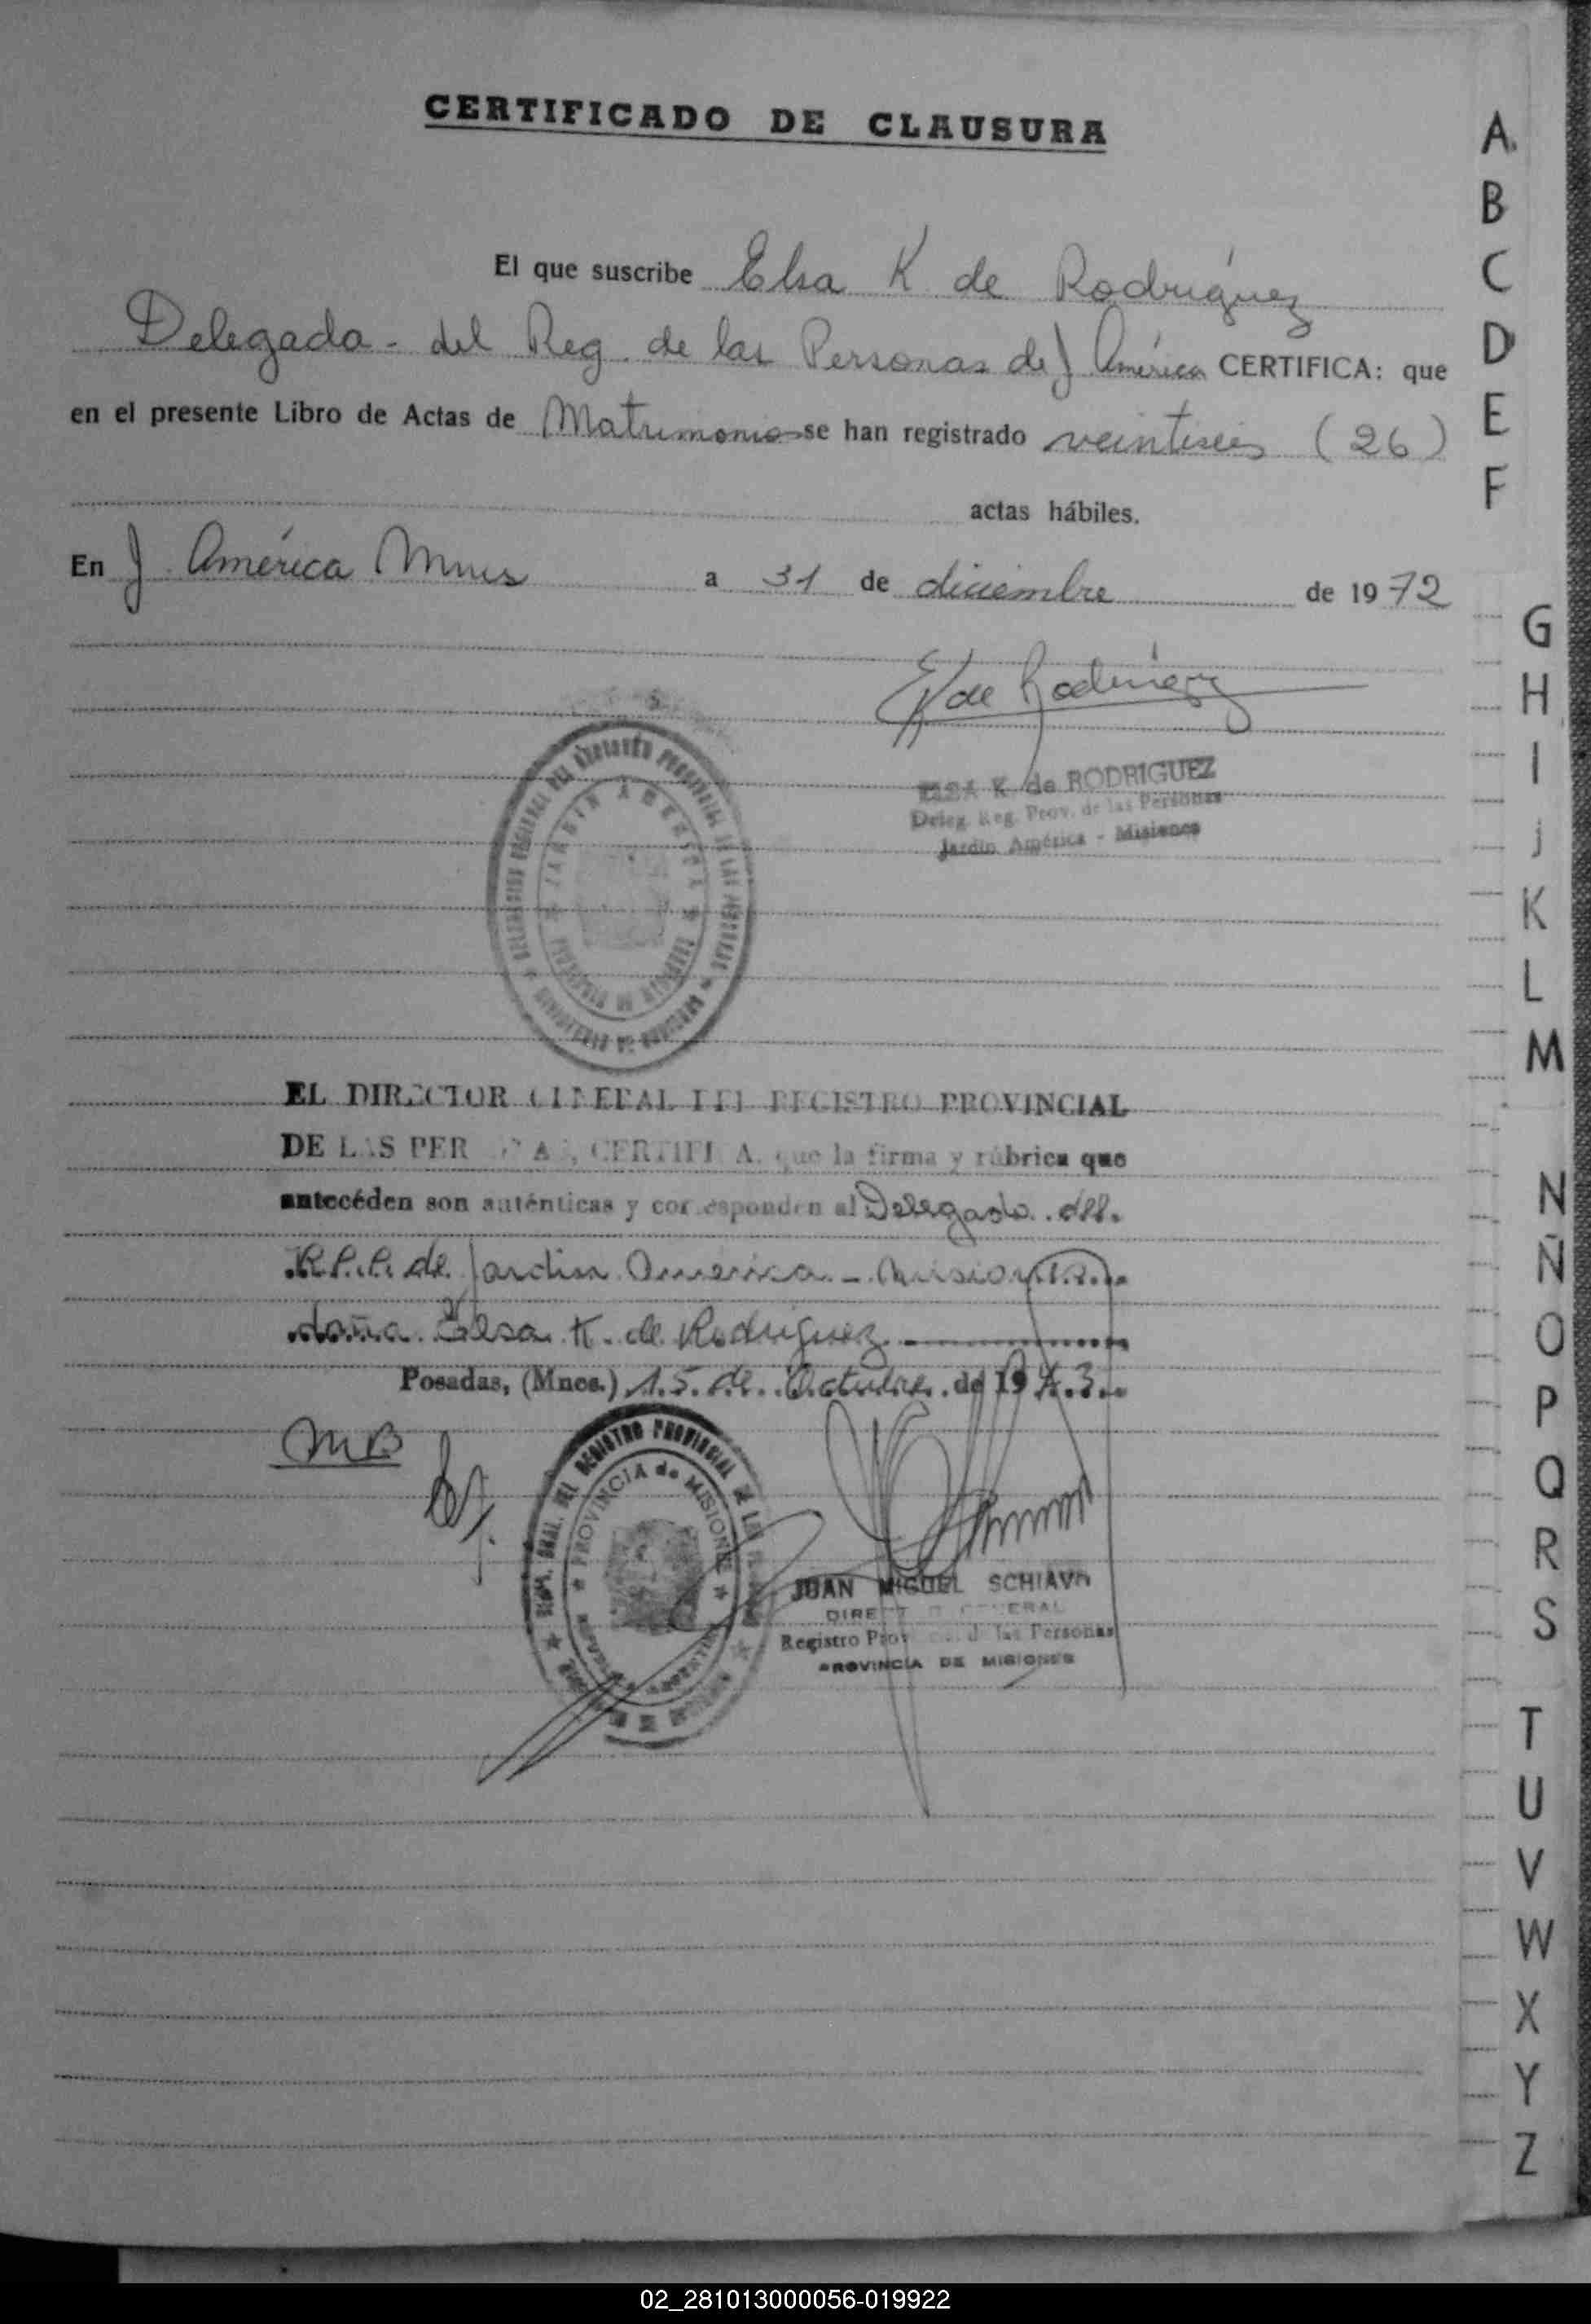 CERTIFICADO DE CLAUSURA
El que suscribe Elsa K de Rodriguez
Delegada - del Reg. de las Personas de J América CERTIFICA: que
en el presente Libro de Actas de Matrimonios se han registrado veintiseis (26)
actas hábiles.
En J América Mnes a 31 de diciembre de 1972
EK de Rodriguez
ELSA K. de RODRIGUEZ
Deleg. Reg. Prov. de las Personas
Jardín América - Misiones
JARDIN AMERICA
EL DIRECTOR GENERAL DEL REGISTRO PROVINCIAL
DE LAS PERSONAS, CERTIFICA, que la firma y rúbrica que
antecéden son auténticas y corresponden al Delegado del
R.P.P. de Jardin America - Misiones
doña Elsa K. de Rodriguez
Posadas, (Mnes.) 15 de Octubre de 1973
MB
DEL REGISTRO PROVINCIAL DE LAS
PROVINCIA de MISIONES
JUAN MIGUEL SCHIAVO
DIRECTOR GENERAL
Registro Prov. de las Personas
PROVINCIA DE MISIONES
A
B
C
D
E
F
G
H
I
j
K
L
M
N
Ñ
O
P
Q
R
S
T
U
V
W
X
Y
Z
02_281013000056-019922